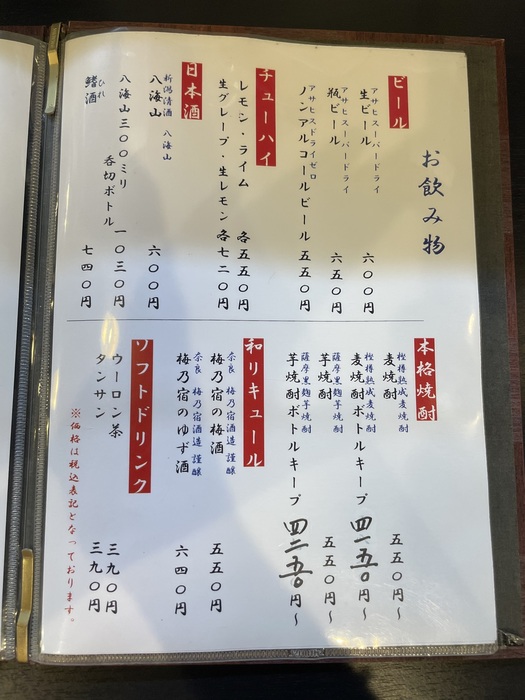 お飲み物
ビール
アサヒスーパードライ
生ビール 六〇〇円
アサヒスーパードライ
瓶ビール 六五〇円
アサヒスドライゼロ
ノンアルコールビール 五五〇円
チューハイ
レモン・ライム 各五五〇円
生グレープ・生レモン 各七二〇円
日本酒
新潟清酒 八海山
八海山 六〇〇円
八海山三〇〇ミリ
呑切ボトル 一〇三〇円
ひれ
鰭酒 七四〇円
本格焼酎
樫樽熟成麦焼酎
麦焼酎 五五〇円～
麦焼酎ボトルキープ 四一五〇円～
薩摩黒麹芋焼酎
芋焼酎 五五〇円～
芋焼酎ボトルキープ 四二五〇円～
和リキュール
奈良 梅乃宿酒造 謹醸
梅乃宿の梅酒 五五〇円
奈良 梅乃宿酒造 謹醸
梅乃宿のゆず酒 六四〇円
ソフトドリンク
ウーロン茶 三九〇円
タンサン 三九〇円
※価格は税込表記となっております。